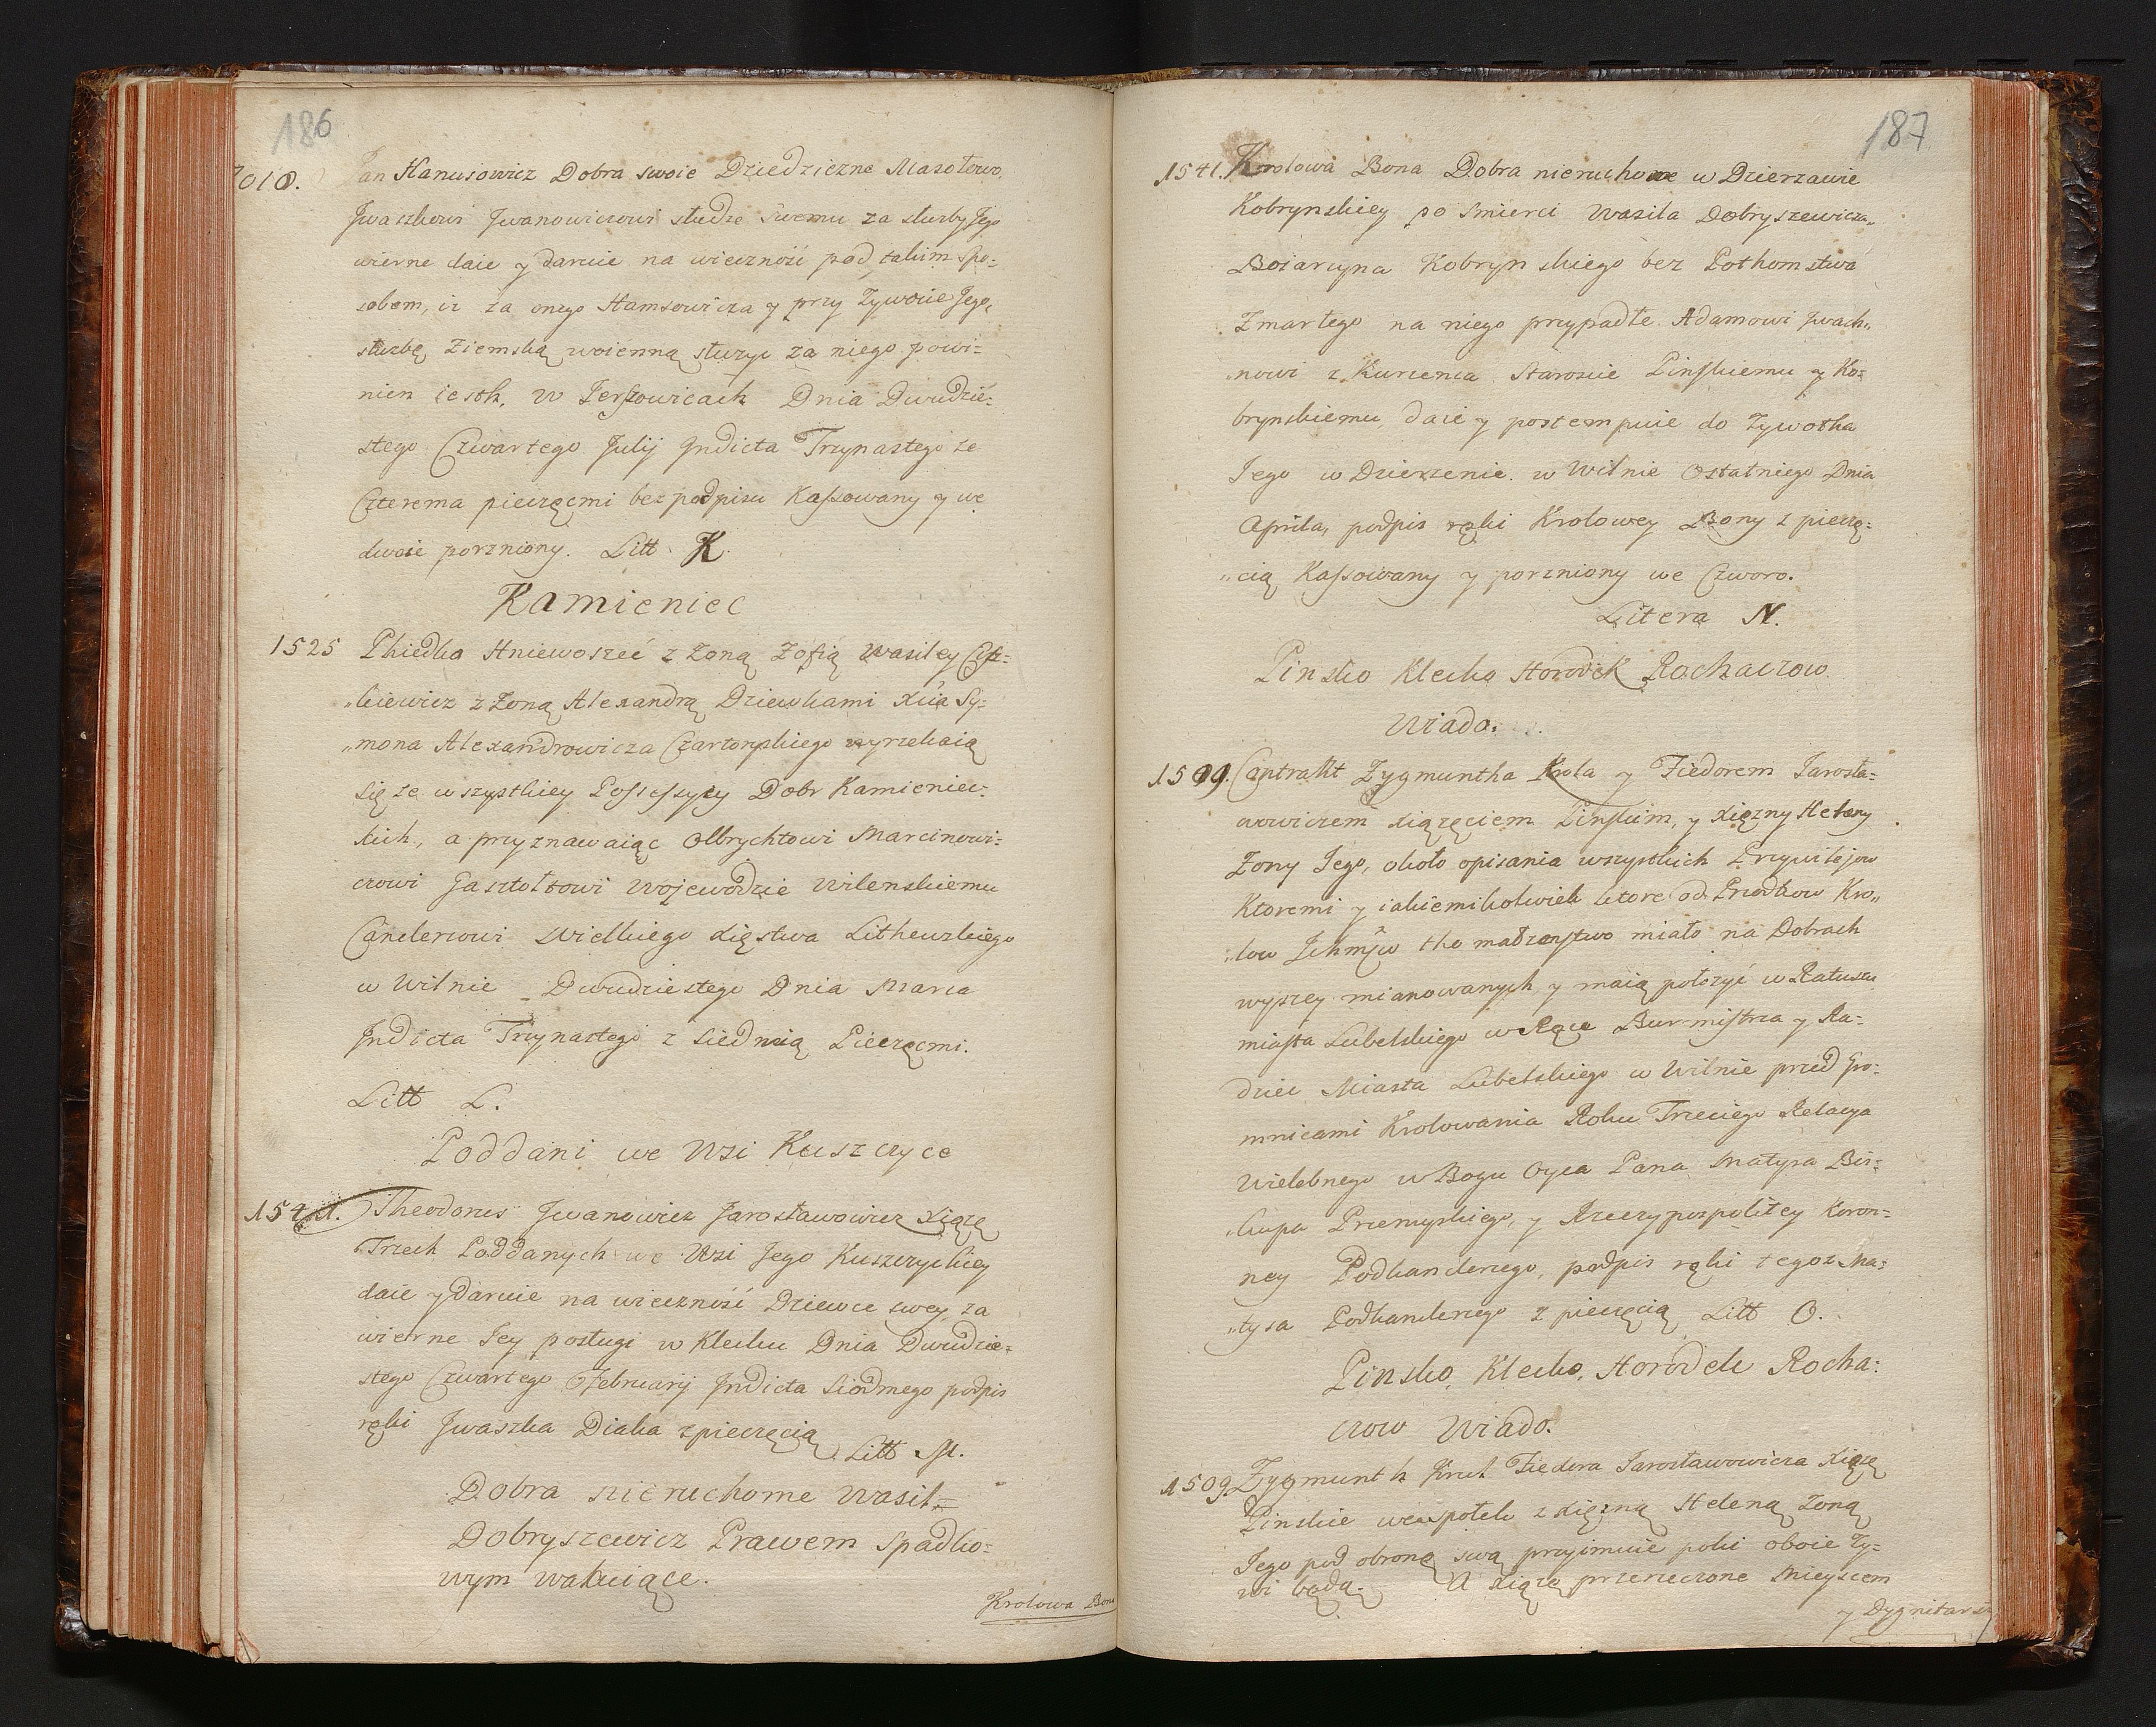 186
1010. Jan Hanusowicz Dobra swoie Dziedziczne Mazołowo,
Jwaszkowi Jwanowiczowi słudze swemu za służby Jego
wierne daie y daruie na wieczność pod takim spo=
sobem, iz za onego Hamsowicza y przy Zywocie Jego,
służbę Ziemską woienną służyc za niego powi=
nien iesth, w Jerszowicach Dnia Dwudzie=
stego Czwartego Julij Jndicta Trzynastego ze
Czterema pieczęcmi bez podpisu Kassowany y we
dwoie porzniony. Litt. K.
Kamieniec
1525 Phiedka Hniewoszeć z Zoną Zofią Wasiley
"kiewicz z Zoną Alexandrą Dziewkami Xcia Sy=
"mona Alexandrowicza Czartoryskiego wyrzekaią
się ze wszystkiey Possessyey Dobr Kamieniec=
kich, a przyznawaiąc Olbrychtowi Marcinowi=
czowi Gasztołtowi Wojewodzie Wilenskiemu
Canclerzowi Wielkiego Xięstwa Lithewskiego
w Wilnie Dwudziestego Dnia Marca
Jndicta Trzynastego z Siedmią Pieczęcmi.
Litt L.
Poddani we Wsi Kuszczyce
1541. Theodorus Jwanowicz Jarosławowicz Xiąze
Trzech Poddanych we Wsi Jego Kuszczyckiey
daie y daruie na wieczność Dziewce swey za
wierne Jey posługi w Klecku Dnia Dwudzie=
stego Czwartego Februarij Jndicta Siodmego podpis
ręki Jwaszka Diaka z pieczęcią Litt M.
Dobra nieruchome Wasil=
Dobryszewicz Prawem Spadko=
wym wakuiące.
Krolowa Bona
187
1541. Krolowa Bona Dobra nieruchome w Dzierzawie
Kobrynskiey po Smierci Wasila Dobryszewicza"
Boiarzyna Kobrynskiego bez Pothomstwa
Zmarłego na niego przypadłe Adamowi Jwach"
nowi z Kurzenca Staroscie Pinskiemu y Ko=
brynskiemu, daie y postempuie do Zywotha
Jego w Dzierzenie. w Wilnie Ostatniego Dnia
Aprila, podpis ręki Krolowey Bony z pieczę=
"cią Kassowany y porzniony we Czworo.
Litera N.
Pinsko Klecko Horodek Rochaczow
Wiado.
1509. Contrakt Zygmuntha Krola y Fiedorem Jarosła=
wowiczem Xiązęciem Pinskim, y Xięzny Heleny
Zony Jego, około opisania wszystkich Przywilejow
Ktoremi y iakiemikolwiek ktore od Przodkow Kro"
"low Jchmsw tho małzenstwo miało na Dobrach
wyszey mianowanych y maią połozyć w Ratuszu
miasta Lubelskiego w Ręce Burmistrza y Ra=
dziec Miasta Lubelskiego w Wilnie przed Gro=
mnicami Krolowania Roku Trzeciego Relacya
Wielebnego w Bogu Oyca Pana Matysa Bis=
"kupa Przemyskiego, y Rzeczypospolitey Koron=
ney Podkanclerzego, podpis ręki tegoz Ma=
"tysa Podkanclerzego z pieczęcią Litt O.
Pinsko, Klecko, Horodek Rocha=
czow Wiado.
1509. Zygmunth Krol Fiedora Jarosławowicza Xiąze
Pinskie wespołek z Xięzną Heleną Zoną
Jego pod obronę swą przyimuie poki oboie Zy=
wi będą. A Xiąze przerzeczone Mieyscem
y Dygnitars